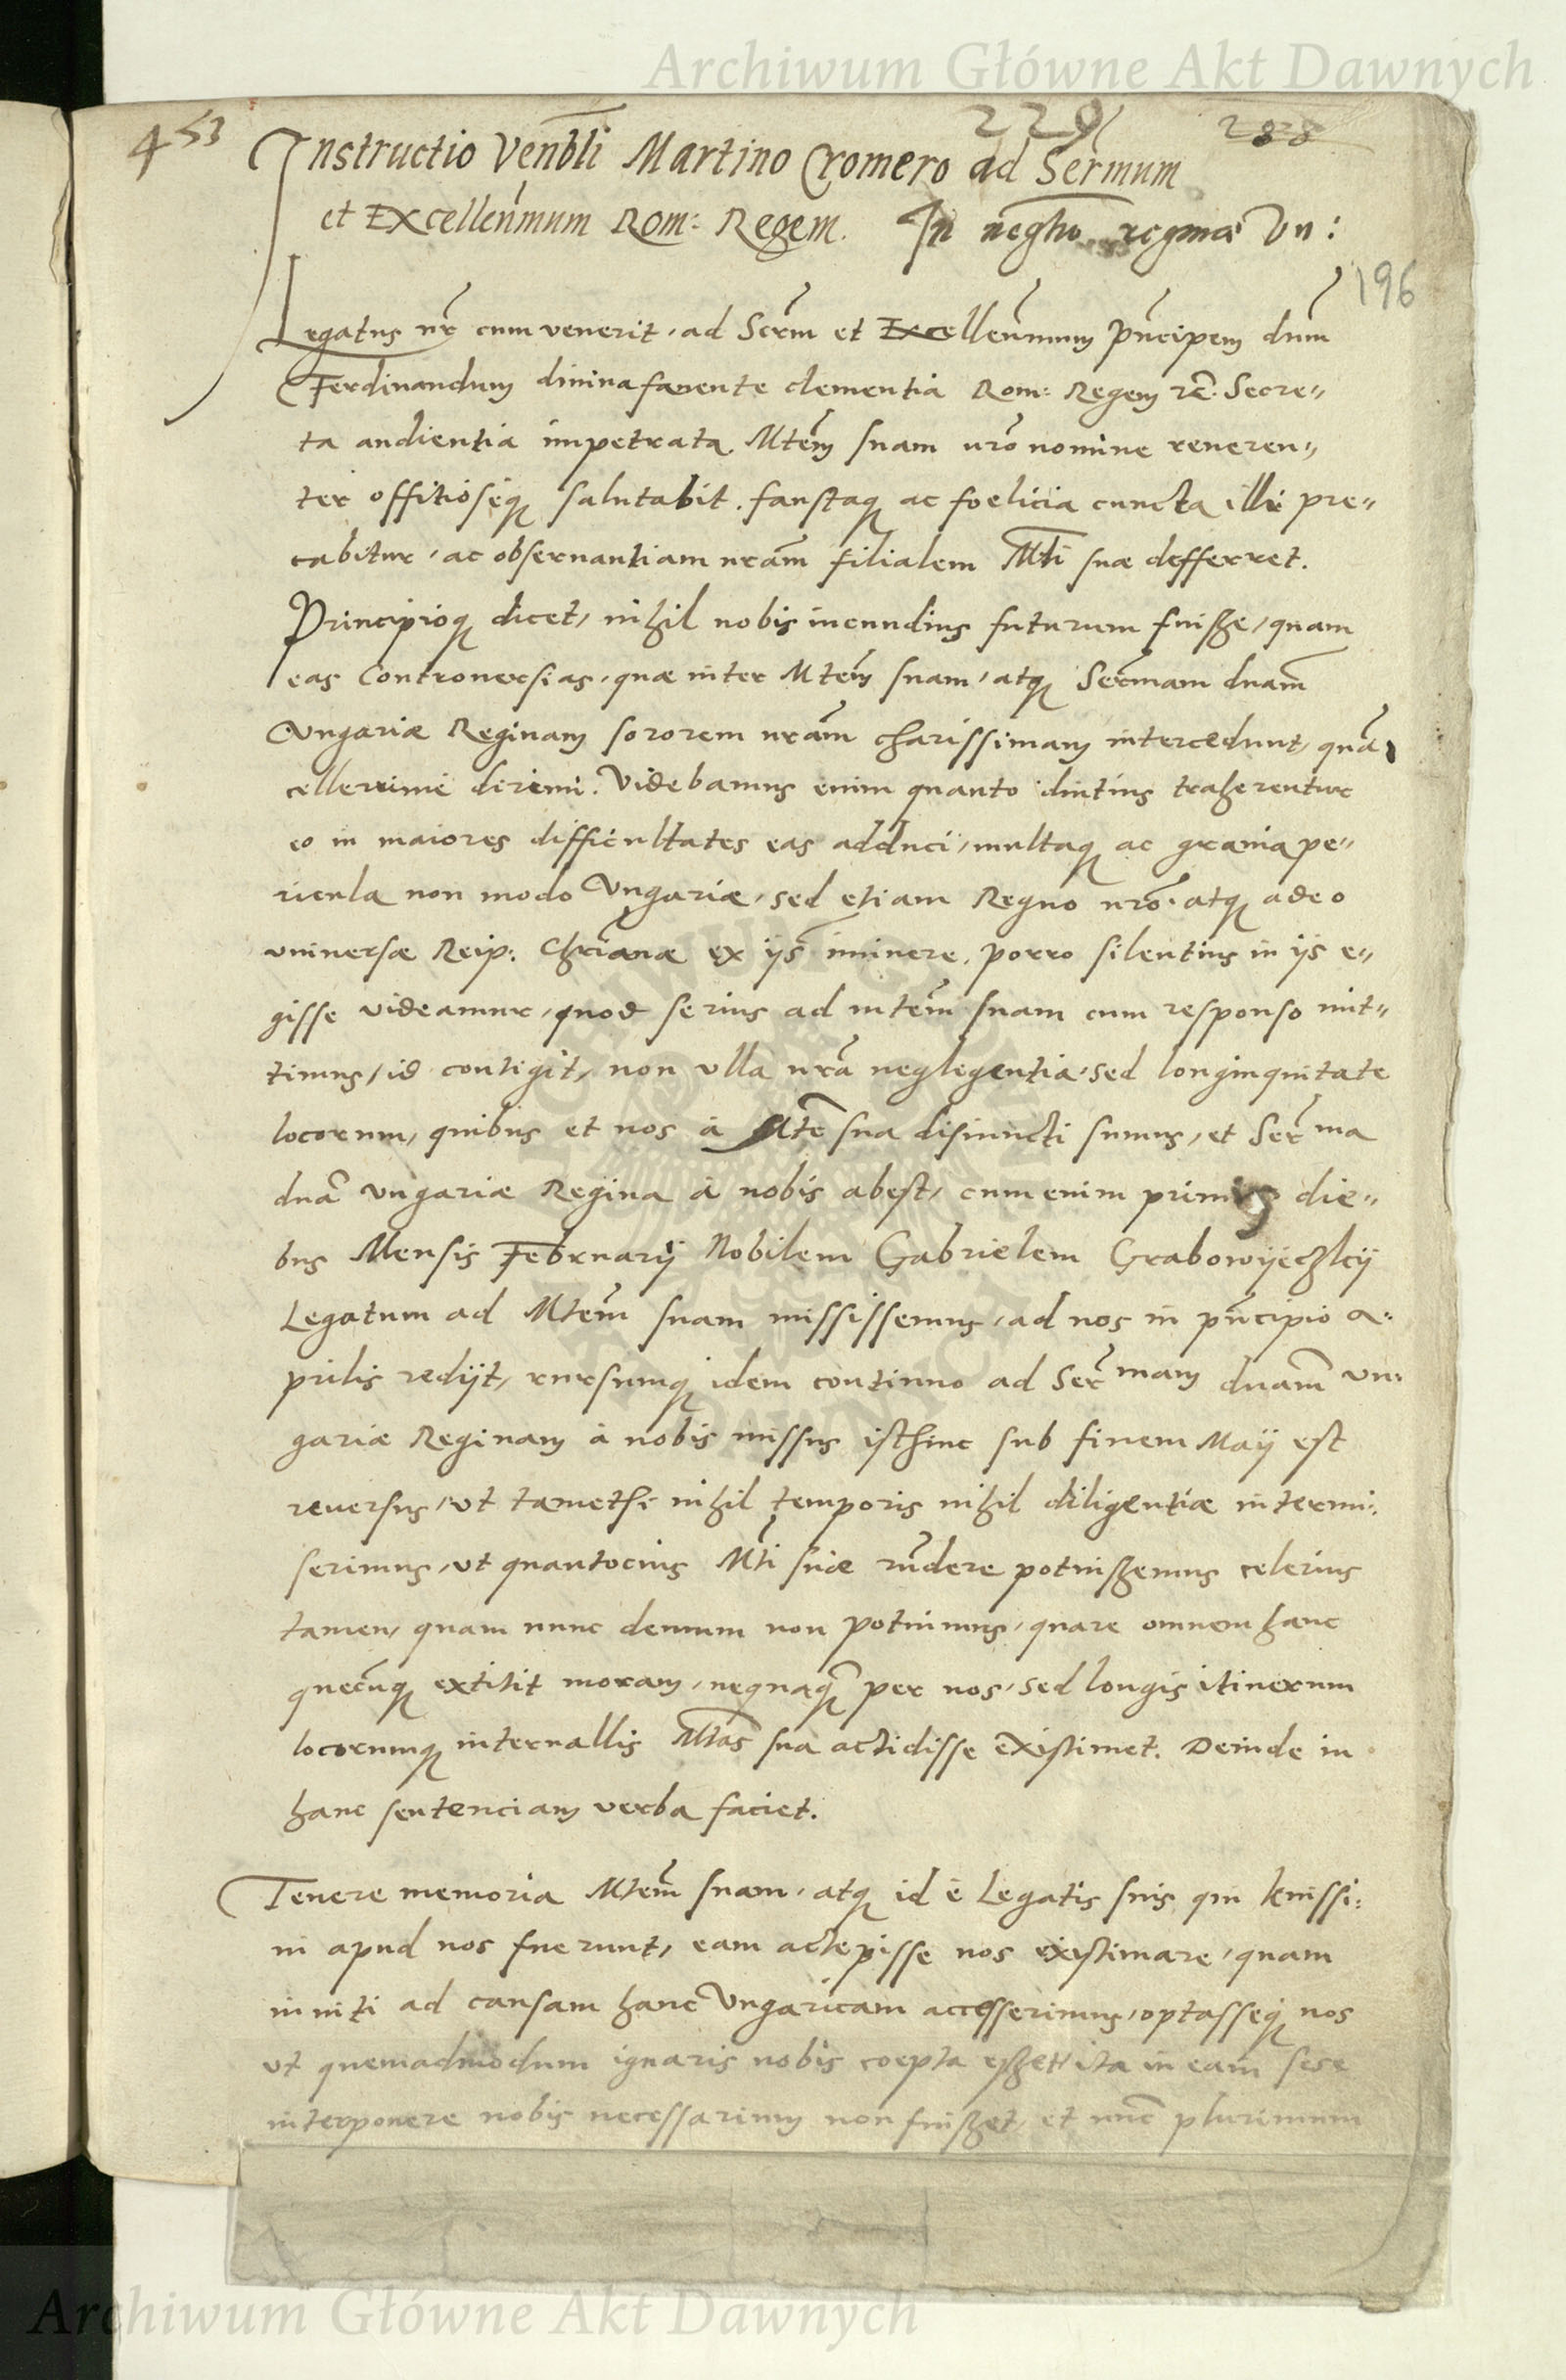 Archiwum Główne Akt Dawnych
453
229
288
Instructio Venbli Martino Cromero ad Sermum
et Excellenmum Rom: Regem. In negtio reginae Vn:
196
Legatus nr cum venerit, ad Serm et Excellenmum Pncipem dnm
Ferdinandum divina favente clementia Rom: Regem rc. Secre„
ta audientia impetrata Mtem suam nro nomine reveren„
ter offitioseq salutabit. faustaq ac foelicia cuncta illi pre„
cabitur, ac observantiam nram filialem Mti suae defferret.
Principioq dicet, nihil nobis iucundius futurum fuisße, quam
eas Controversias, quae inter Mtem suam, atq Sermam dnam
Vngariae Reginam sororem nram charissimam intercedunt, qua
cellerrime dirimi. Videbamus enim quanto diutius traherentur
eo in maiores difficultates eas adduci, multaq ac gravia pe„
ricula non modo Vngariae, sed etiam Regno nro, atq adeo
vniversae Reip: Chrianae ex ijs iminere. porro silentius in ijs e„
gisse videamur, quod serius ad mtem suam cum responso mit„
timus, id contigit, non vlla nra neglegentia, sed longinquitate
locorum, quibus et nos a Mte sua disiuncti sumus, et Ser ma
dna Vngariae Regina a nobis abest, cum enim primis die„
bus Mensis Februarij Nobilem Gabrielem Grabowyeczkij
Legatum ad Mtem suam misissemus, ad nos in pncipio A„
prilis redijt, rursumq idem continuo ad Ser mam dnam Vn„
gariae Reginam a nobis missus isthinc sub finem Maij est
reversus, vt tamethsi nihil temporis nihil diligentiae intermi„
serimus, vt quantocius Mti suae rndere potuißemus celerius
tamen, quam nunc demum non potuimus, quare omnem hanc
quecunq extitit moram, nequaq per nos, sed longis itinerum
locorumq intervallis Mtas sua accidisse existimet. Deinde in
hanc sentenciam verba faciet.
Tenere memoria Mtem suam, atq id e Legatis suis qui
ni apud nos fuerunt, eam accepisse nos existimare, quam
inviti ad causam hanc Vngaricam accesserimus, optasseq nos
vt quemadmodum ignaris nobis coepta eßet ita in eam sese
interponere nobis necessarium non fuißet, et nunc plurimum
Archiwum Główne Akt Dawnych